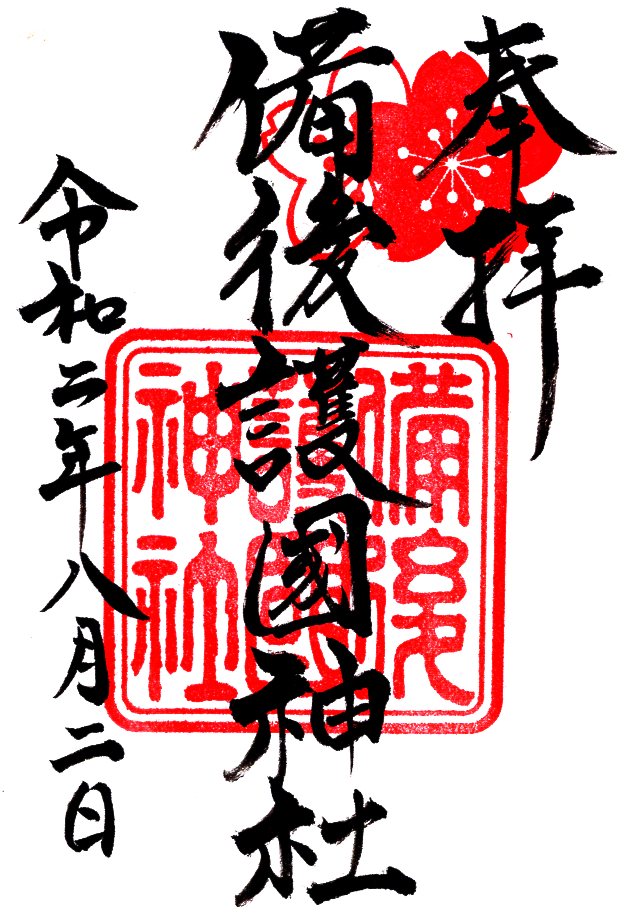 奉拝
備後護國神社
備後
護國
神社
令和二年八月二日